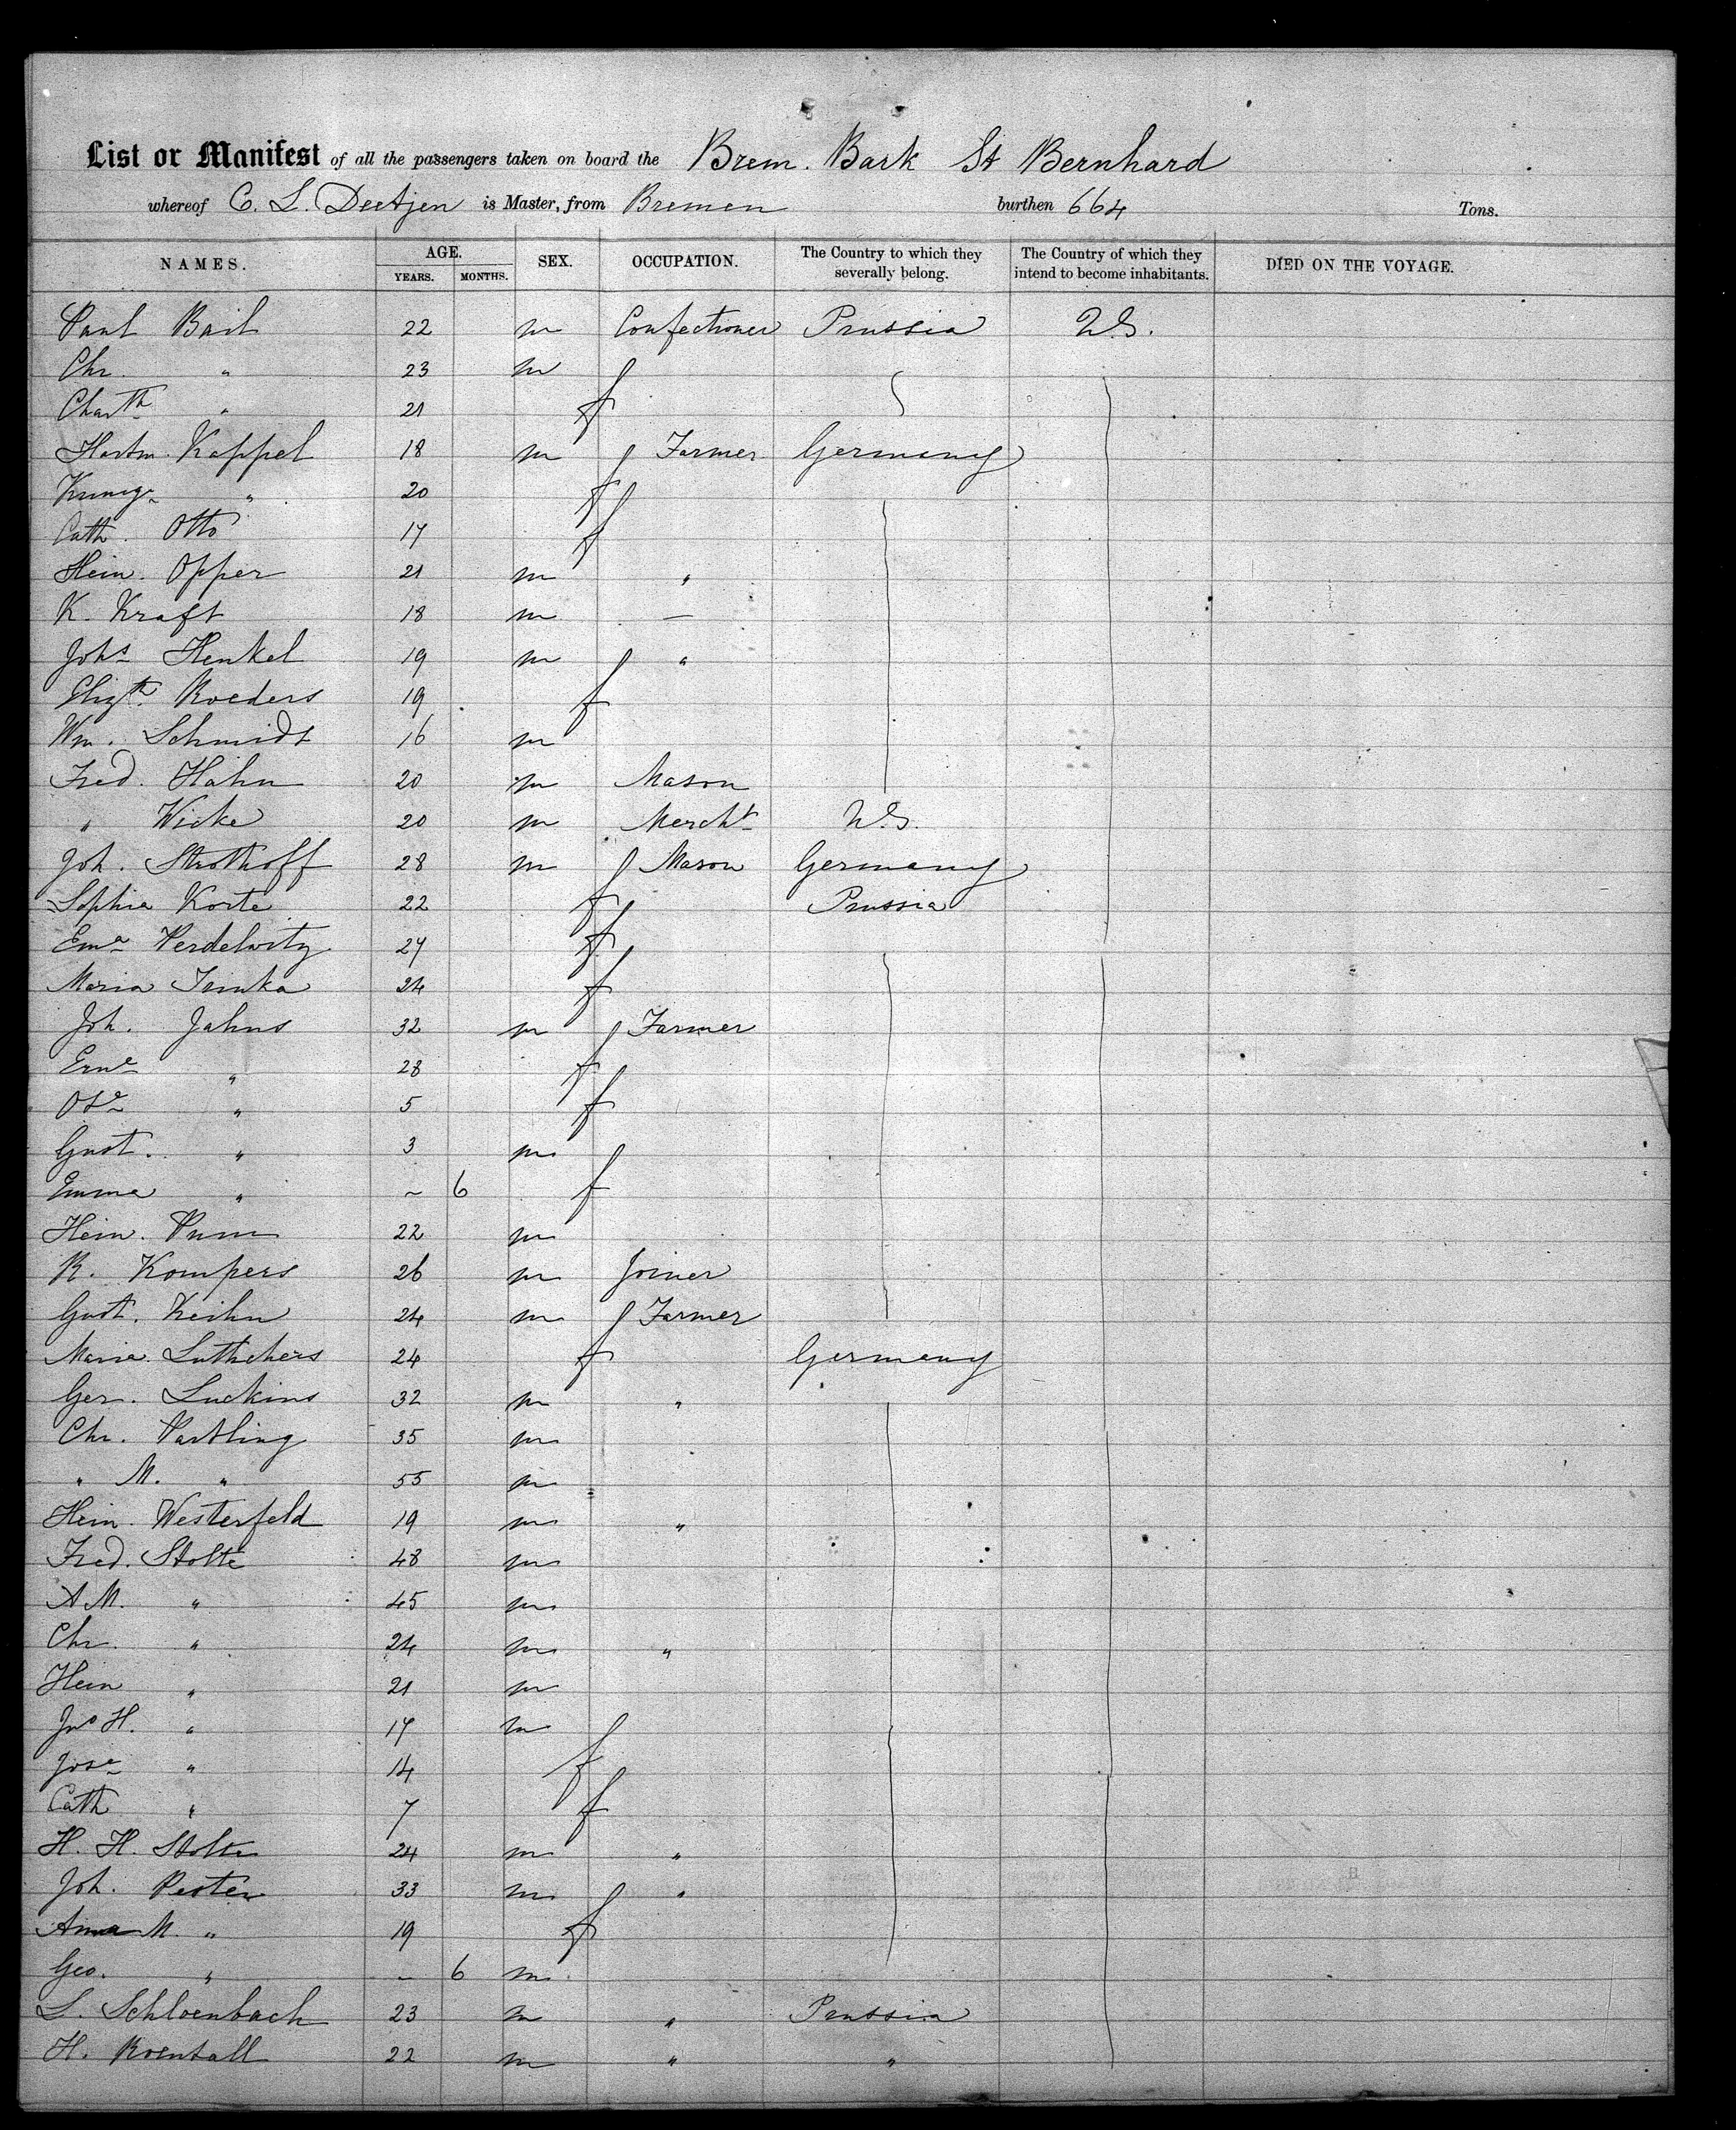 List or Manifest of all the passengers taken on board the Brem. Bark St Bernhard
whereof C. L. Deetjen is Master, from Bremen burthen 664 Tons.
NAMES. AGE. YEARS. MONTHS. SEX. OCCUPATION. The Country to which they severally belong. The Country of which they intend to become inhabitants. DIED ON THE VOYAGE.
Paul Bail 22 m Confectioner Prussia U.S.
Chr. " 23 m
Charth " 21 f
Hartm. Kappel 18 m Farmer Germany
" 20 f
Cath. Otto 17 f
Hein. Opper 21 m "
K. Kraft 18 m —
Johs Henkel 19 m "
Elizth Roeders 19 f
Wm. Schmidt 16 m
Fred. Hahn 20 m Mason
" Wicke 20 m Mercht U.S.
Joh. Strothoff 28 m Mason Germany
Sophia Korte 22 f Prussia
Ema Perdelwitz 27 f
Maria 24 f
Joh. Jahns 32 m Farmer
Erne " 28 f
" 5 f
Gust. " 3 m
Emma " ~ 6 f
Hein. 22 m
R. Kompers 26 m Joiner
Gust. Keihn 24 m Farmer
Maria 24 f Germany
Ger. Luckins 32 m "
Chr. Partling 35 m
" M. " 55 m
Hein. Westerfeld 19 m "
Fred. Stolte 48 m
A M. " 45 m
Chr. " 24 m "
Hein " 21 m
Jno H. " 17 m
Josa " 14 f
Cath " 7 f
H. H. Stolte 24 m "
Joh. Pester 33 m "
Anna M. " 19 f
Geo. " – 6 m
L. Schloenbach 23 m " Prussia
H. Roentall 22 m " "